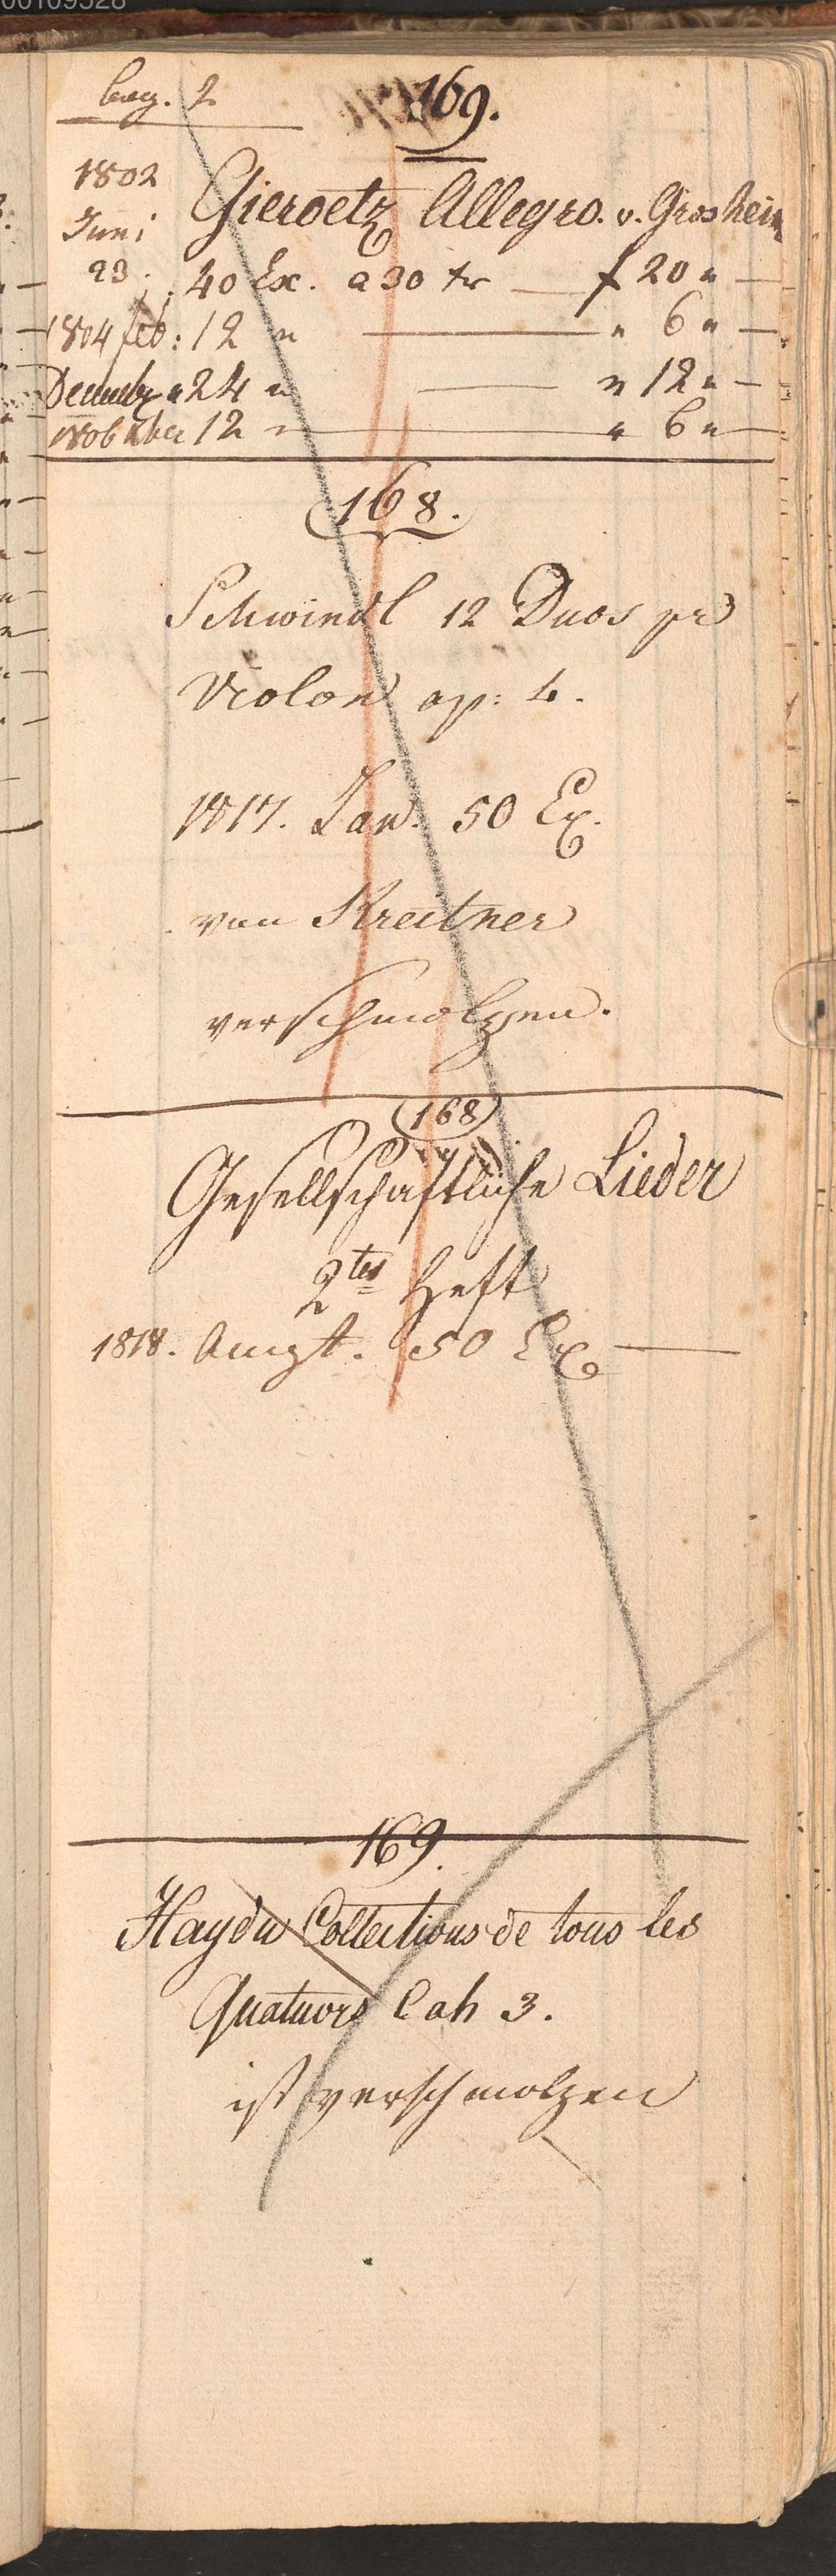 00109528
bog. 2
169.
1802
Gieroetz Allegro. v. Grosheim
Juni
23. 40 Ex. a 30 xr — f 20 " —
1804 feb: 12 " — " 6 " —
Decembr " 24 " — " 12 " —
1806 12 " — " 6 " —
168.
Schwindl 12 Duos pr
Violon op: 4.
1817. Jan. 50 Ex.
von Kreitner
verschmolzen.
168
Gesellschaftliche Lieder
2tes Heft
1818. Augt. 50 Ex —
169.
Haydn Collections de tous les
Quatuors Cah 3.
ist verschmolzen